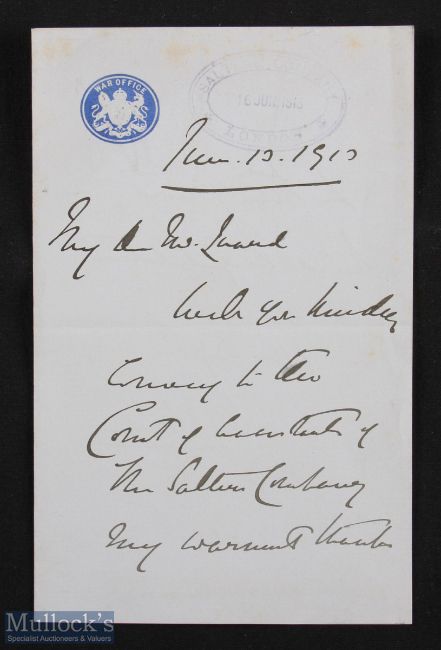 WAR OFFICE
SALTERS COMPANY
16 JUN. 1913
LONDON
June. 13. 1913
My dear Mr.
Will you kindly
convey to the
Court of Assistants of
The Salters Company
my warmest thanks
Mullock's
Specialist Auctioneers & Valuers